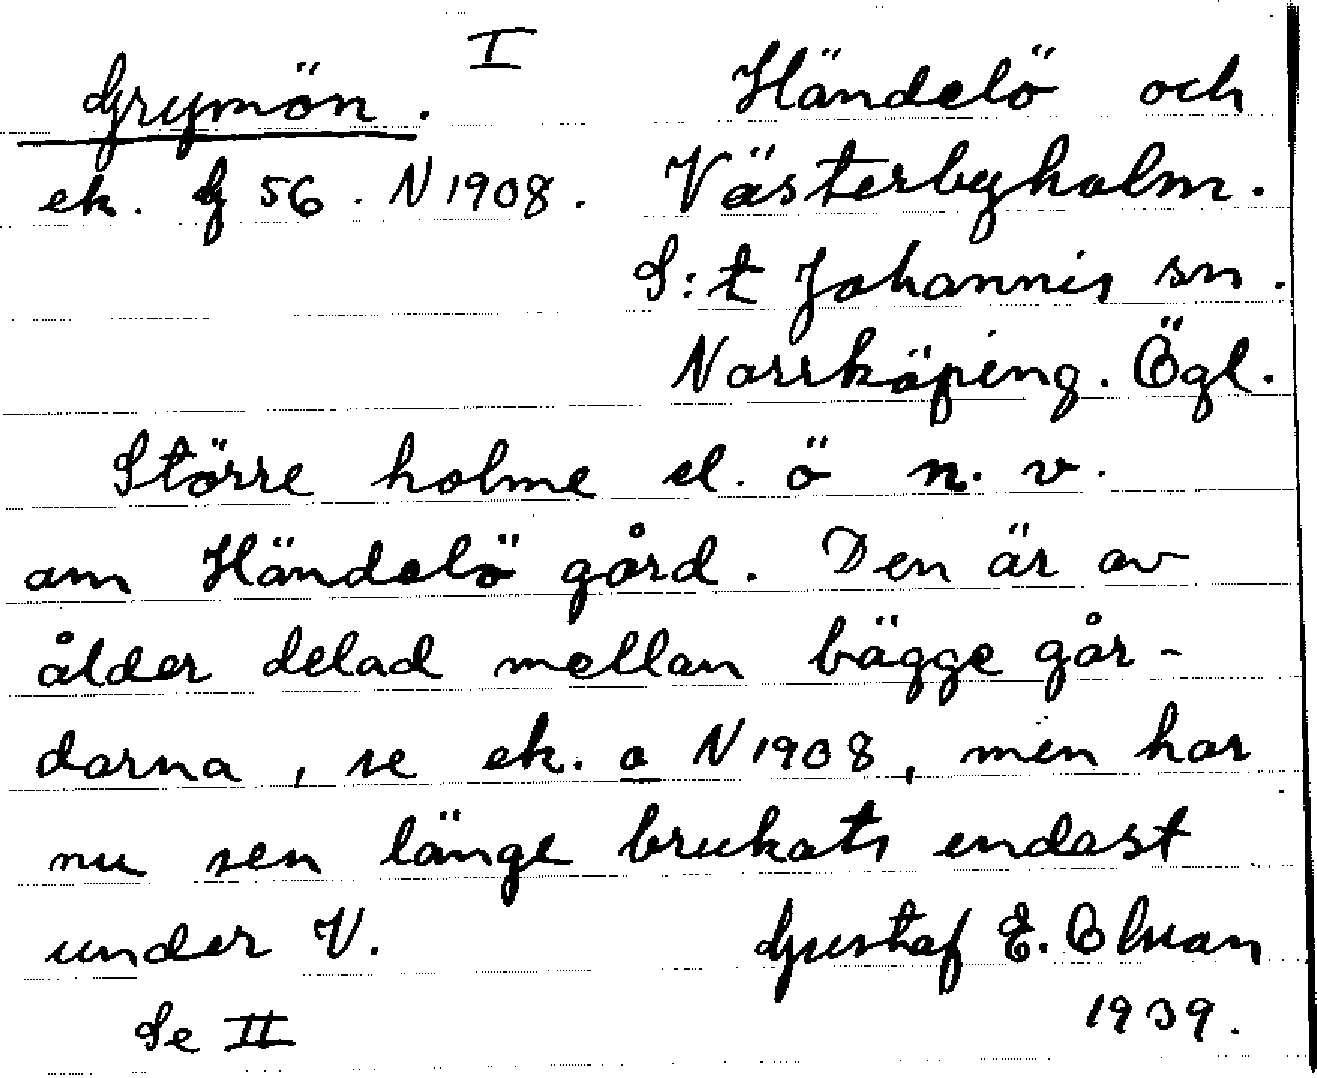 I
Grymön.
ek. G 56. N 1908.
Händelö och
Västerbyholm.
S:t Johannis sn.
Norrköping. Ögl.
Större holme el. ö n. v.
om Händelö gård. Den är av
ålder delad mellan bägge går-
darna, se ek. a N 1908, men har
nu sen länge brukats endast
under V.
Gustaf E. Olsson
1939.
Se II